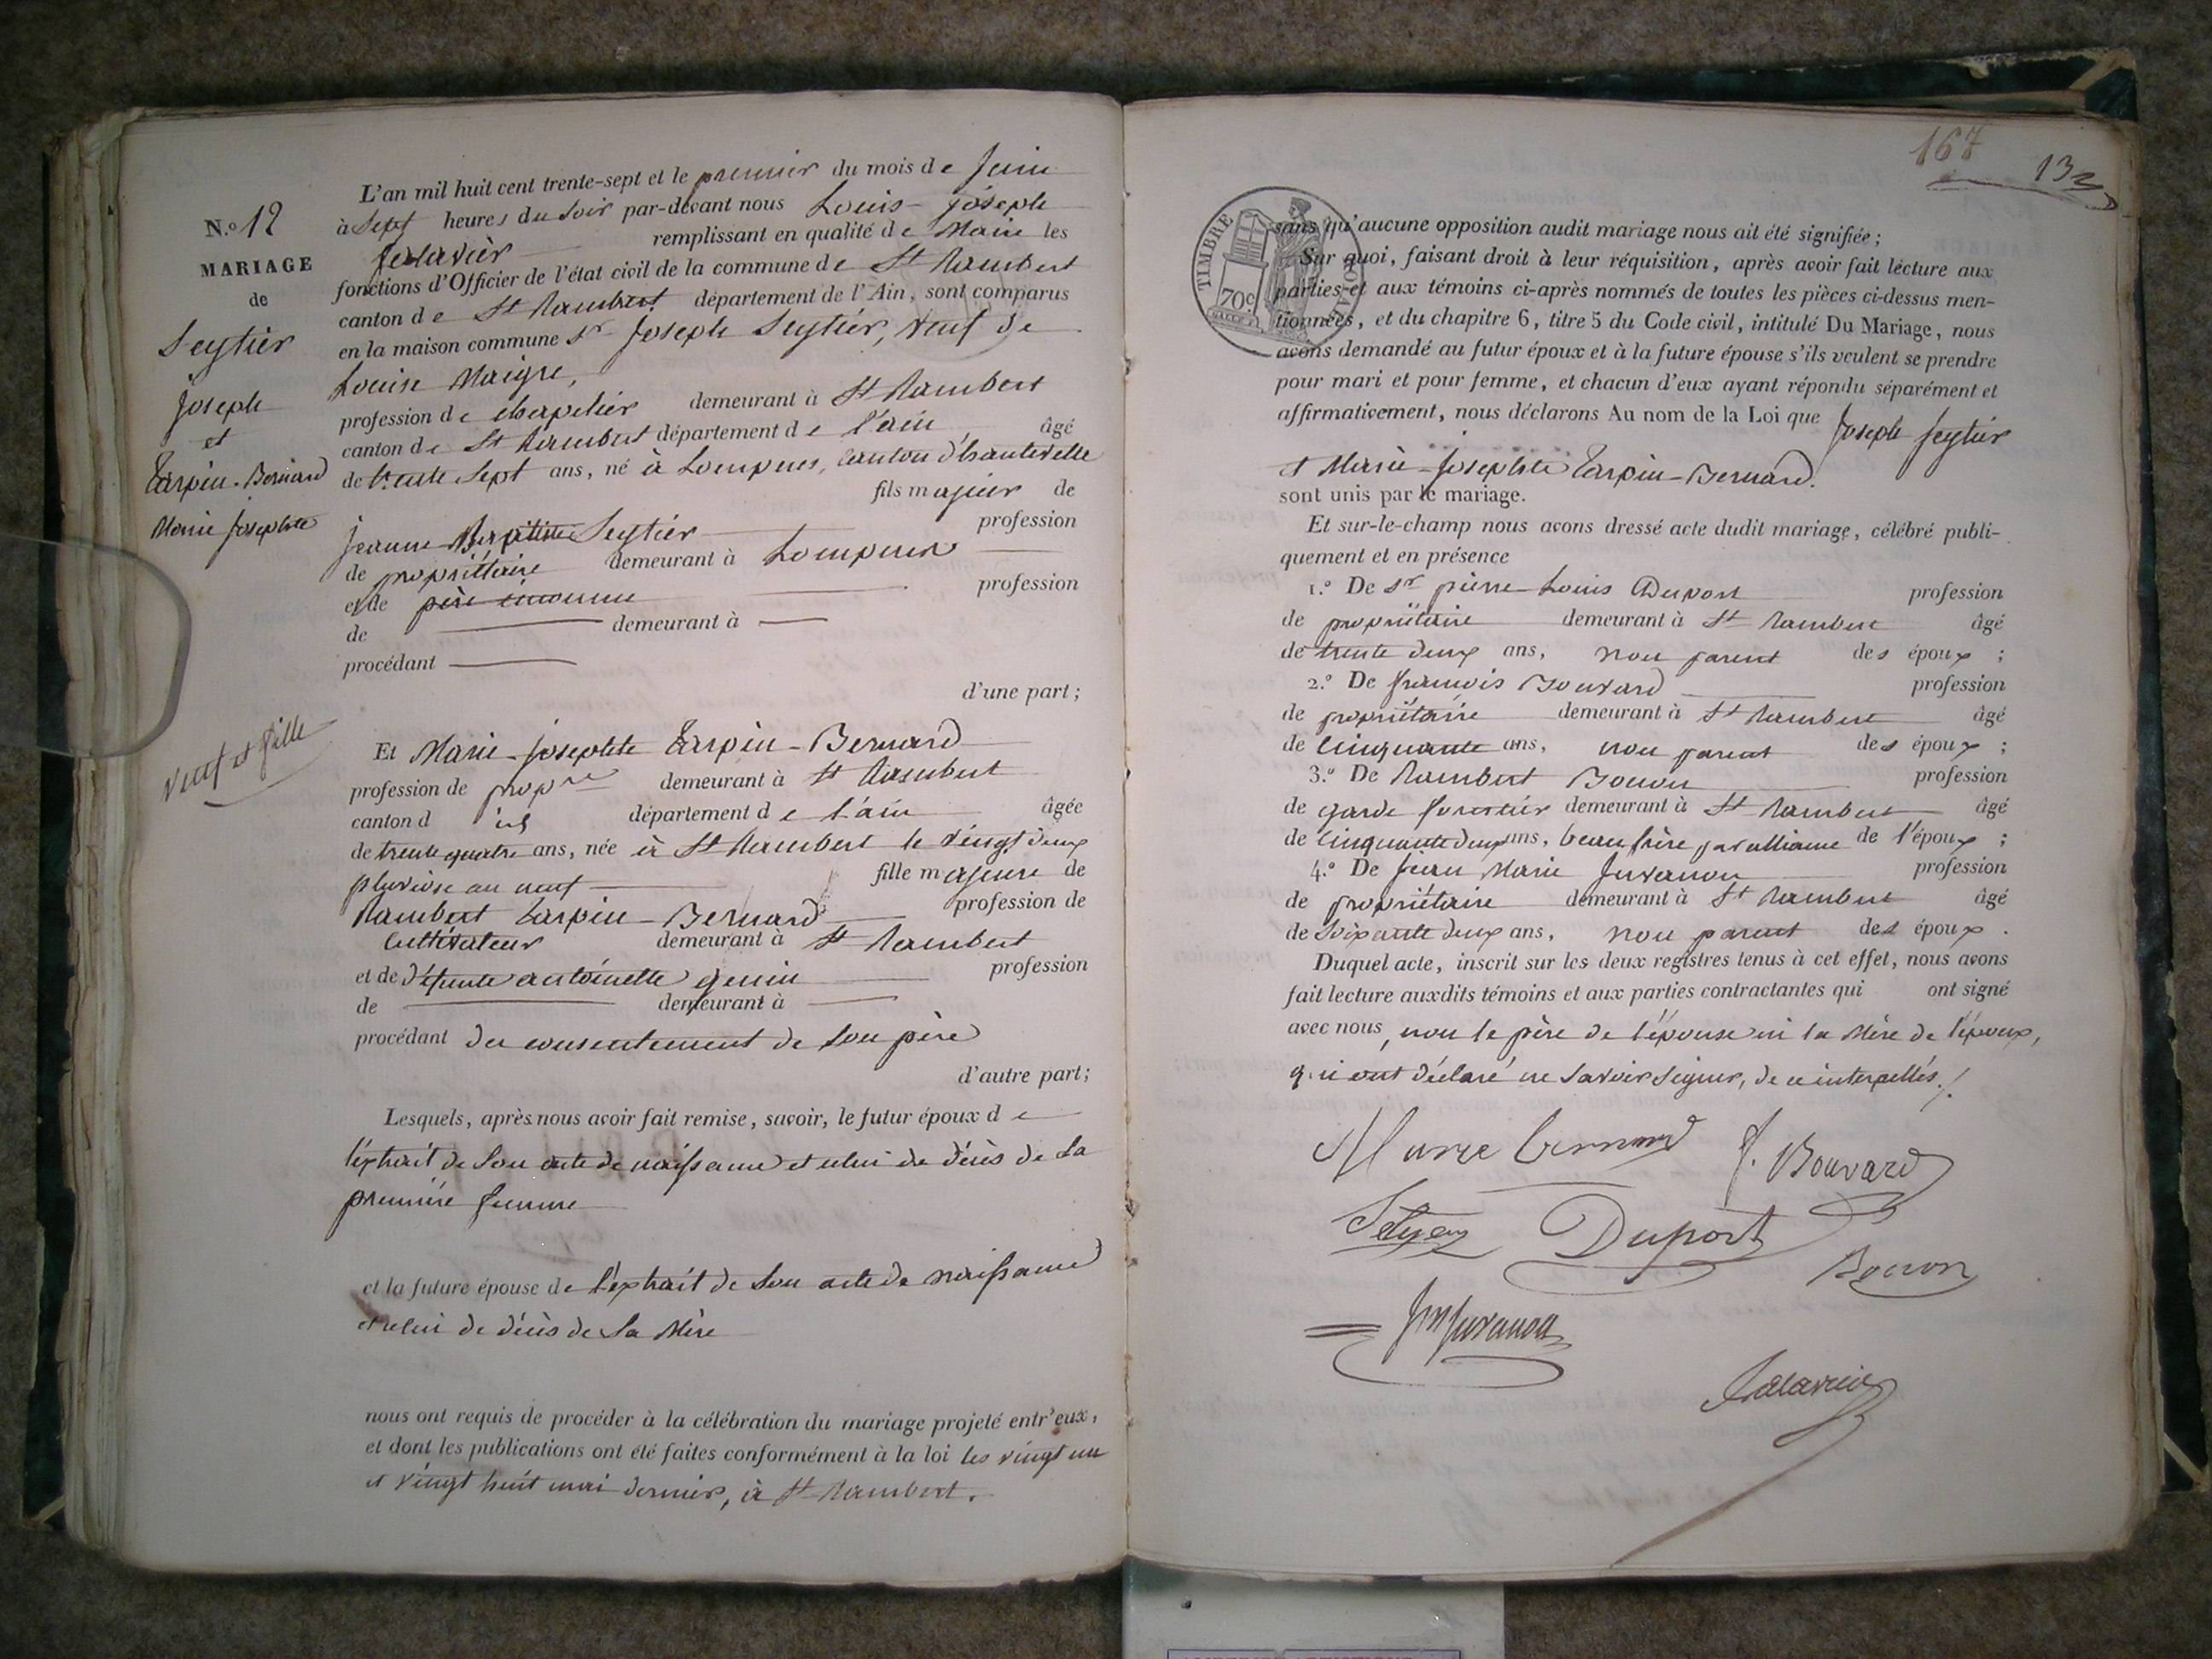 N.º 12
MARIAGE
de
Seytier
Joseph
et
Tarpin-Bernard
Marie Josephte
veuf et fille
L'an mil huit cent trente-sept et le premier du mois de Juin
à Sept heures du Soir par-devant nous Louis-Joseph
remplissant en qualité de Maire les
fonctions d'Officier de l'état civil de la commune de St Rambert
canton de St Rambert département de l'Ain, sont comparus
en la maison commune Sr Joseph Seytier, veuf de
Louise Maigre,
profession de chapelier demeurant à St Rambert
canton de St Rambert département de l'ain, âgé
de trente Sept ans, né à Lompnes, canton d'hauteville
fils majeur de
Jeanne Seytier profession
de propriétaire demeurant à Lompnes
et de père inconnu profession
de demeurant à
procédant
d'une part;
Et Marie-Josephte Tarpin-Bernard
profession de propre demeurant à St Rambert
canton d id département de l'ain âgée
de trente quatre ans, née à St Rambert le vingt deux
pluviose an neuf fille majeure de
Rambert Tarpin-Bernard profession de
Cultivateur demeurant à St Rambert
et de défunte antoinette genin profession
de demeurant à
procédant du consentement de Son père
d'autre part;
Lesquels, après nous avoir fait remise, savoir, le futur époux de
l'extrait de Son acte de naissance et celui de décès de Sa
première femme
et la future épouse de l'extrait de Son acte de naissance
et celui de décès de Sa Mère
nous ont requis de procéder à la célébration du mariage projeté entr'eux,
et dont les publications ont été faites conformément à la loi les vingt un
et vingt huit mai dernier, à St Rambert.
167
133
TIMBRE
70c
sans qu'aucune opposition audit mariage nous ait été signifiée;
Sur quoi, faisant droit à leur réquisition, après avoir fait lecture aux
parties et aux témoins ci-après nommés de toutes les pièces ci-dessus men-
tionnées, et du chapitre 6, titre 5 du Code civil, intitulé Du Mariage, nous
avons demandé au futur époux et à la future épouse s'ils veulent se prendre
pour mari et pour femme, et chacun d'eux ayant répondu séparément et
affirmativement, nous déclarons Au nom de la Loi que Joseph Seytier
et Marie-Josephte Tarpin-Bernard.
sont unis par le mariage.
Et sur-le-champ nous avons dressé acte dudit mariage, célébré publi-
quement et en présence
1.º De Sr pierre-Louis Duport profession
de propriétaire demeurant à St Rambert âgé
de trente deux ans, non parent des époux;
2.º De françois Bouvard profession
de propriétaire demeurant à St Rambert âgé
de Cinquante ans, non parent des époux;
3.º De Rambert Bouvon profession
de garde forestier demeurant à St Rambert âgé
de Cinquante deux ans, beau frère par alliance de l'époux;
4.º De Jean Marie Juvanon profession
de propriétaire demeurant à St Rambert âgé
de Soixante deux ans, non parent des époux.
Duquel acte, inscrit sur les deux registres tenus à cet effet, nous avons
fait lecture auxdits témoins et aux parties contractantes qui ont signé
avec nous, non le père de l'épouse ni la Mère de l'époux,
qui ont déclaré ne Savoir Signer, de ce interpellés./.
Marie bernard f. Bouvard
Duport
Bouvon
Jm Juvanon